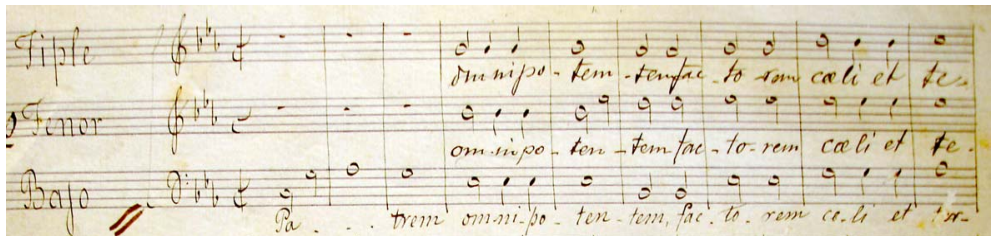 Tiple
omnipo - tem - tem fac - to - rem cœli et te -
Tenor
om-nipo - ten - tem fac - to - rem cœli et te -
Bajo
Pa . . . trem om-ni-po - ten - tem, fac - to - rem ce-li et